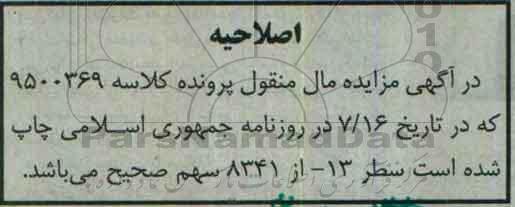 اصلاحیه
در آگهی مزایده مال منقول پرونده کلاسه ۹۵۰۰۳۶۹
که در تاریخ ۷/۱۶ در روزنامه جمهوری اسلامی چاپ
شده است سطر ۱۳- از ۸۳۴۱ سهم صحیح می‌باشد.
ParsNamadData